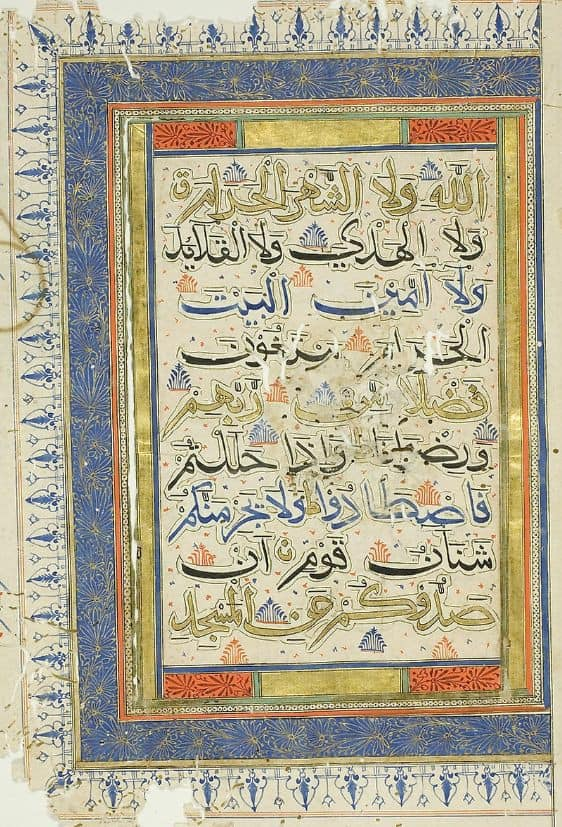 الله ولا الشهر الحرام
ولا الهدي ولا القلايد
ولا آمين البيت
الحرام يبتغون
فضلا من ربهم
ورضوانا واذا حللتم
فاصطادوا ولا يجرمنكم
شنان قوم ان
صدوكم عن المسجد